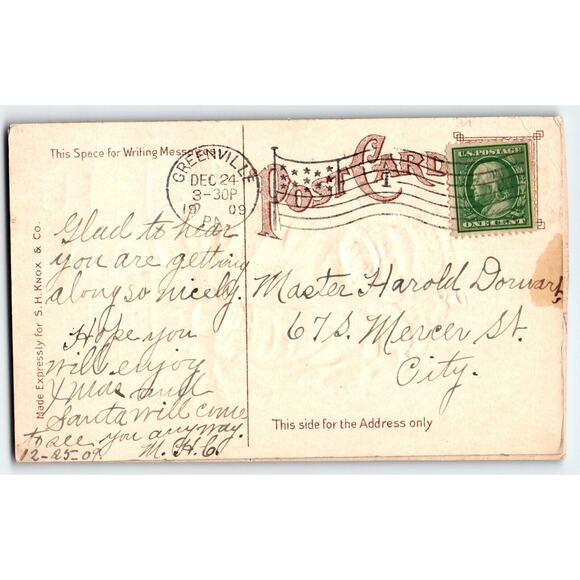 This Space for Writing Messages
POST CARD
GREENVILLE
DEC 24
3-30P
19 09
PA.
U.S. POSTAGE
ONE CENT
Made Expressly for S. H. Knox & Co.
Glad to hear
you are getting
along so nicely.
Hope you
will enjoy
Xmas and
Santa will come
to see you anyway.
12-25-09. M. H. C.
Master Harold Dorwart
67 S. Mercer St.
City.
This side for the Address only